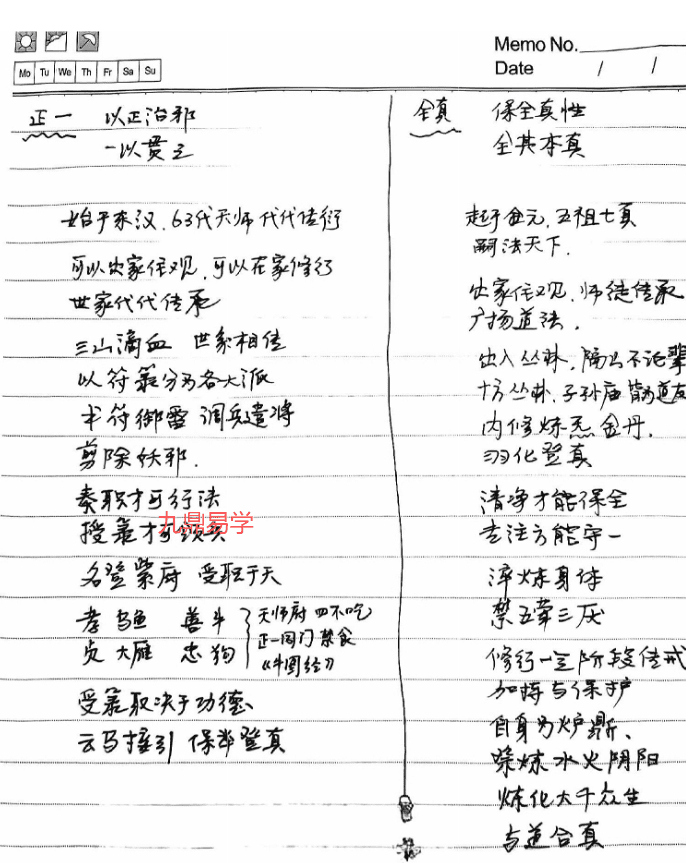 Memo No.
Date / /
Mo Tu We Th Fr Sa Su
正一 以正治邪
一以贯之
始于东汉.63代天师代代传衍
可以出家住观.可以在家修行
世家代代传承
三山滴血 世家相传
以符箓分为各大派
书符御雷 调兵遣将
剪除妖邪.
奏职才可行法
授箓才可
九鼎易学
名登紫府 受职于天
孝乌鱼 善牛
贞大雁 忠狗
天师府四不吃
正一同门禁食
《牛图经》
受箓取决于功德
云马接引 保举登真
全真 保全真性
全其本真
起于金元.五祖七真
嗣法天下.
出家住观.师徒传承
广扬道法.
出入丛林.隔山不论辈
十方丛林.子孙庙皆为道友
内修炼炁金丹.
羽化登真
清净才能保全
专注方能守一
淬炼身体
禁五荤三厌
修行一定阶段传戒
加持与保护
自身为炉鼎、
炼水火阴阳
炼化大千众生
与道合真